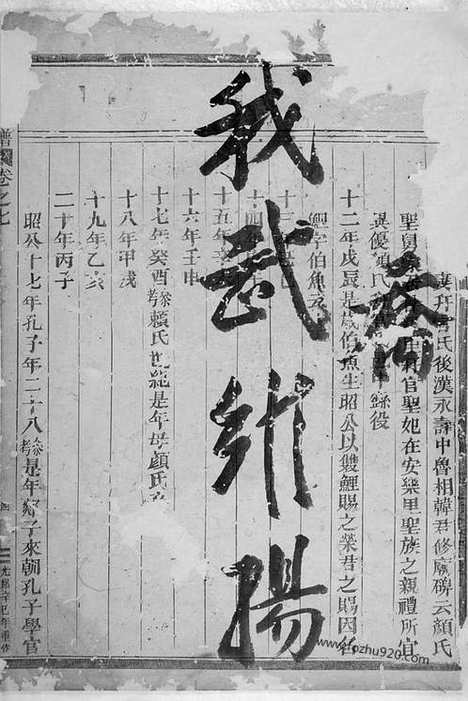 我武維揚
妻并官氏後漢永壽中魯相韓君修廟碑云顏氏
聖舅家并官聖妃在安樂里聖族之親禮所宜
異優顏氏中繇役
十二年戊辰是歲伯魚生昭公以雙鯉賜之榮君之賜因名
鯉字伯魚
十三
十四年
十五年
十六年壬申
十七年癸酉參考賴氏世総是年母顏氏
十八年甲戌
十九年乙亥
二十年丙子
昭公十七年孔子年二十八參考是年郯子來朝孔子學官
譜卷之七
光緒辛巳年重修
www.fozhu920.com